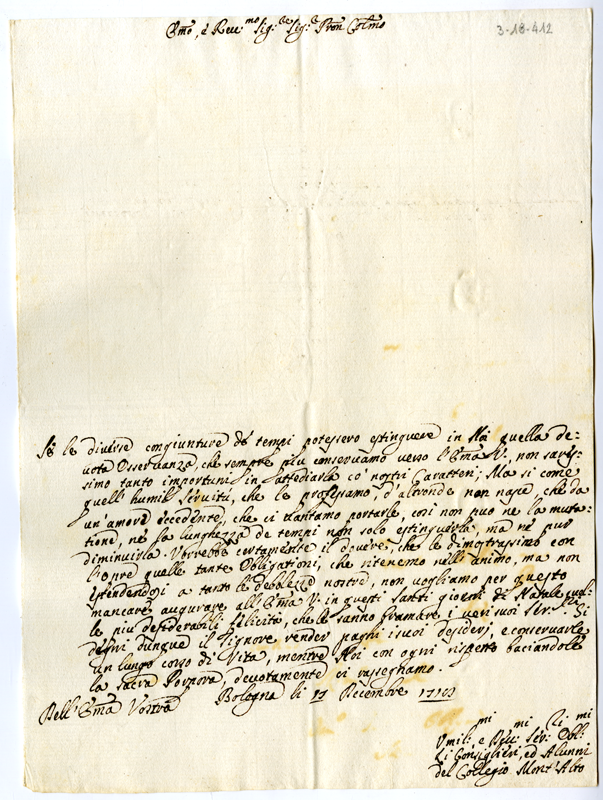 Em̄o, e Reu.mo Sig.re Sig.re Pron Col̄mo
3-18-412
Se le diuerse congiunture de tempi potessero estinguere in Noi quella de=
uota Osseruanza, che sempre più conseruiamo verso l'Em̄a V., non sares=
simo tanto importuni in attediarla co' nostri Caratteri; Ma si come
quell'humil seruitù, che le professiamo, d'altronde non nasce che da
un'amore eccedente, che ci uantiamo portarle, così non può ne la muta=
tione, ne la lunghezza de tempi non solo estinguerla, ma ne può
diminuirla. Vorrebbe certamente il douere, che le dimostrassimo con
l'opre quelle tante Obligationi, che ritenemo nell'animo, ma non
estendendosi a tanto le debolezze nostre, non vogliamo per questo
mancare augurare all'Em̄a V. in questi santi giorni di Natale quel=
le più desiderabili felicità, che le sanno bramare, i veri suoi Ser.ri Si
degni dunque il Signore render paghi i suoi desiderj, e conseruarle
un lungo corso di Vita, mentre Noi con ogni rispetto baciandole
la sacra Porpora, deuotamente ci rassegnamo.
Dell'Em̄a Vostra Bologna li 17 Decembre
Vmil.mi e Deu.mi Ser.ri Obl.mi
Li Consiglieri, ed Alunni
del Collegio Mont'Alto